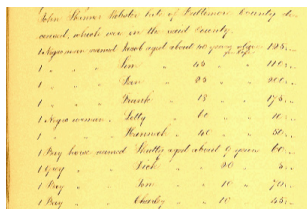 John Skinner Webster late of Baltimore County de
ceased, which are in the said County.
1 Negro man named Jacob aged about 50 years 125..
1 " " " Sam " 45 " 110..
1 " " " " 25 " 200..
1 " " " Frank " 18 " 175..
1 Negro woman " Letty " 60 " 10..
1 " " " Hannah " 40 " 50..
1 Bay horse named aged about 9 years 60..
1 Gray " Dick " 20 " 5..
1 Bay " Tom " 10 " 70..
1 Bay " Charley " 10 " 45..